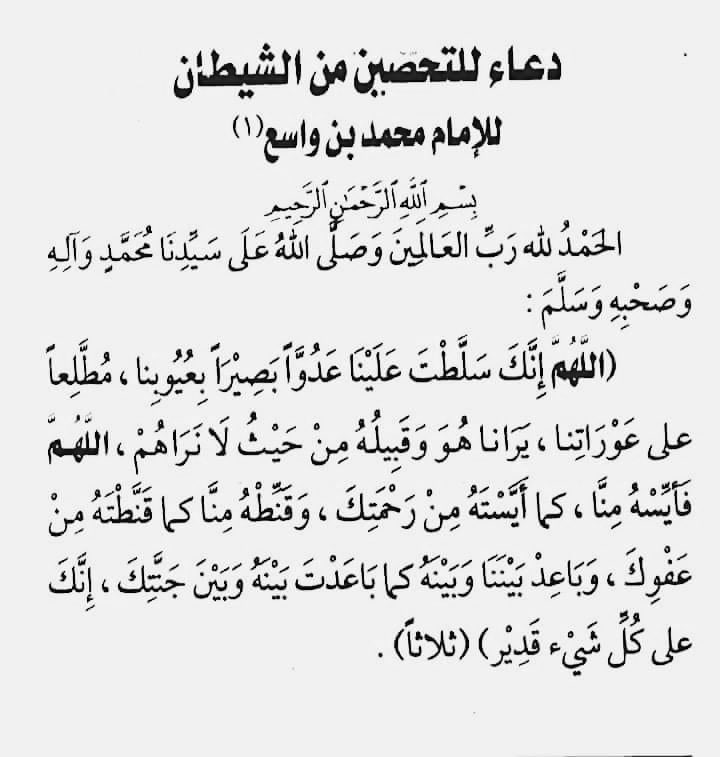 دعاء للتحصين من الشيطان
للإمام محمد بن واسع(١)
بِسْمِ ٱللَّهِ ٱلرَّحْمَٰنِ ٱلرَّحِيمِ
الحَمْدُ لله رَبِّ العَالَمِينَ وَصَلَّى اللهُ عَلَى سَيِّدِنَا مُحَمَّدٍ وَآلِهِ
وَصَحْبِهِ وَسَلَّمَ :
(اللَّهُمَّ إِنَّكَ سَلَّطْتَ عَلَيْنَا عَدُوَّاً بَصِيْرَاً بِعُيُوبِنا ، مُطَّلِعاً
على عَوْرَاتِنا ، يَرَانا هُوَ وَقَبِيلُهُ مِنْ حَيْثُ لَا نَرَاهُمْ ، اللَّهُمَّ
فَأَيِّسْهُ مِنَّا ، كما أَيَّسْتَهُ مِنْ رَحْمَتِكَ ، وَقَنِّطْهُ مِنَّا كما قَنَّطْتَهُ مِنْ
عَفْوِكَ ، وَبَاعِدْ بَيْنَنَا وَبَيْنَهُ كما بَاعَدْتَ بَيْنَهُ وَبَيْنَ جَنَّتِكَ ، إِنَّكَ
على كُلِّ شَيْء قَدِيْر) (ثلاثاً) .